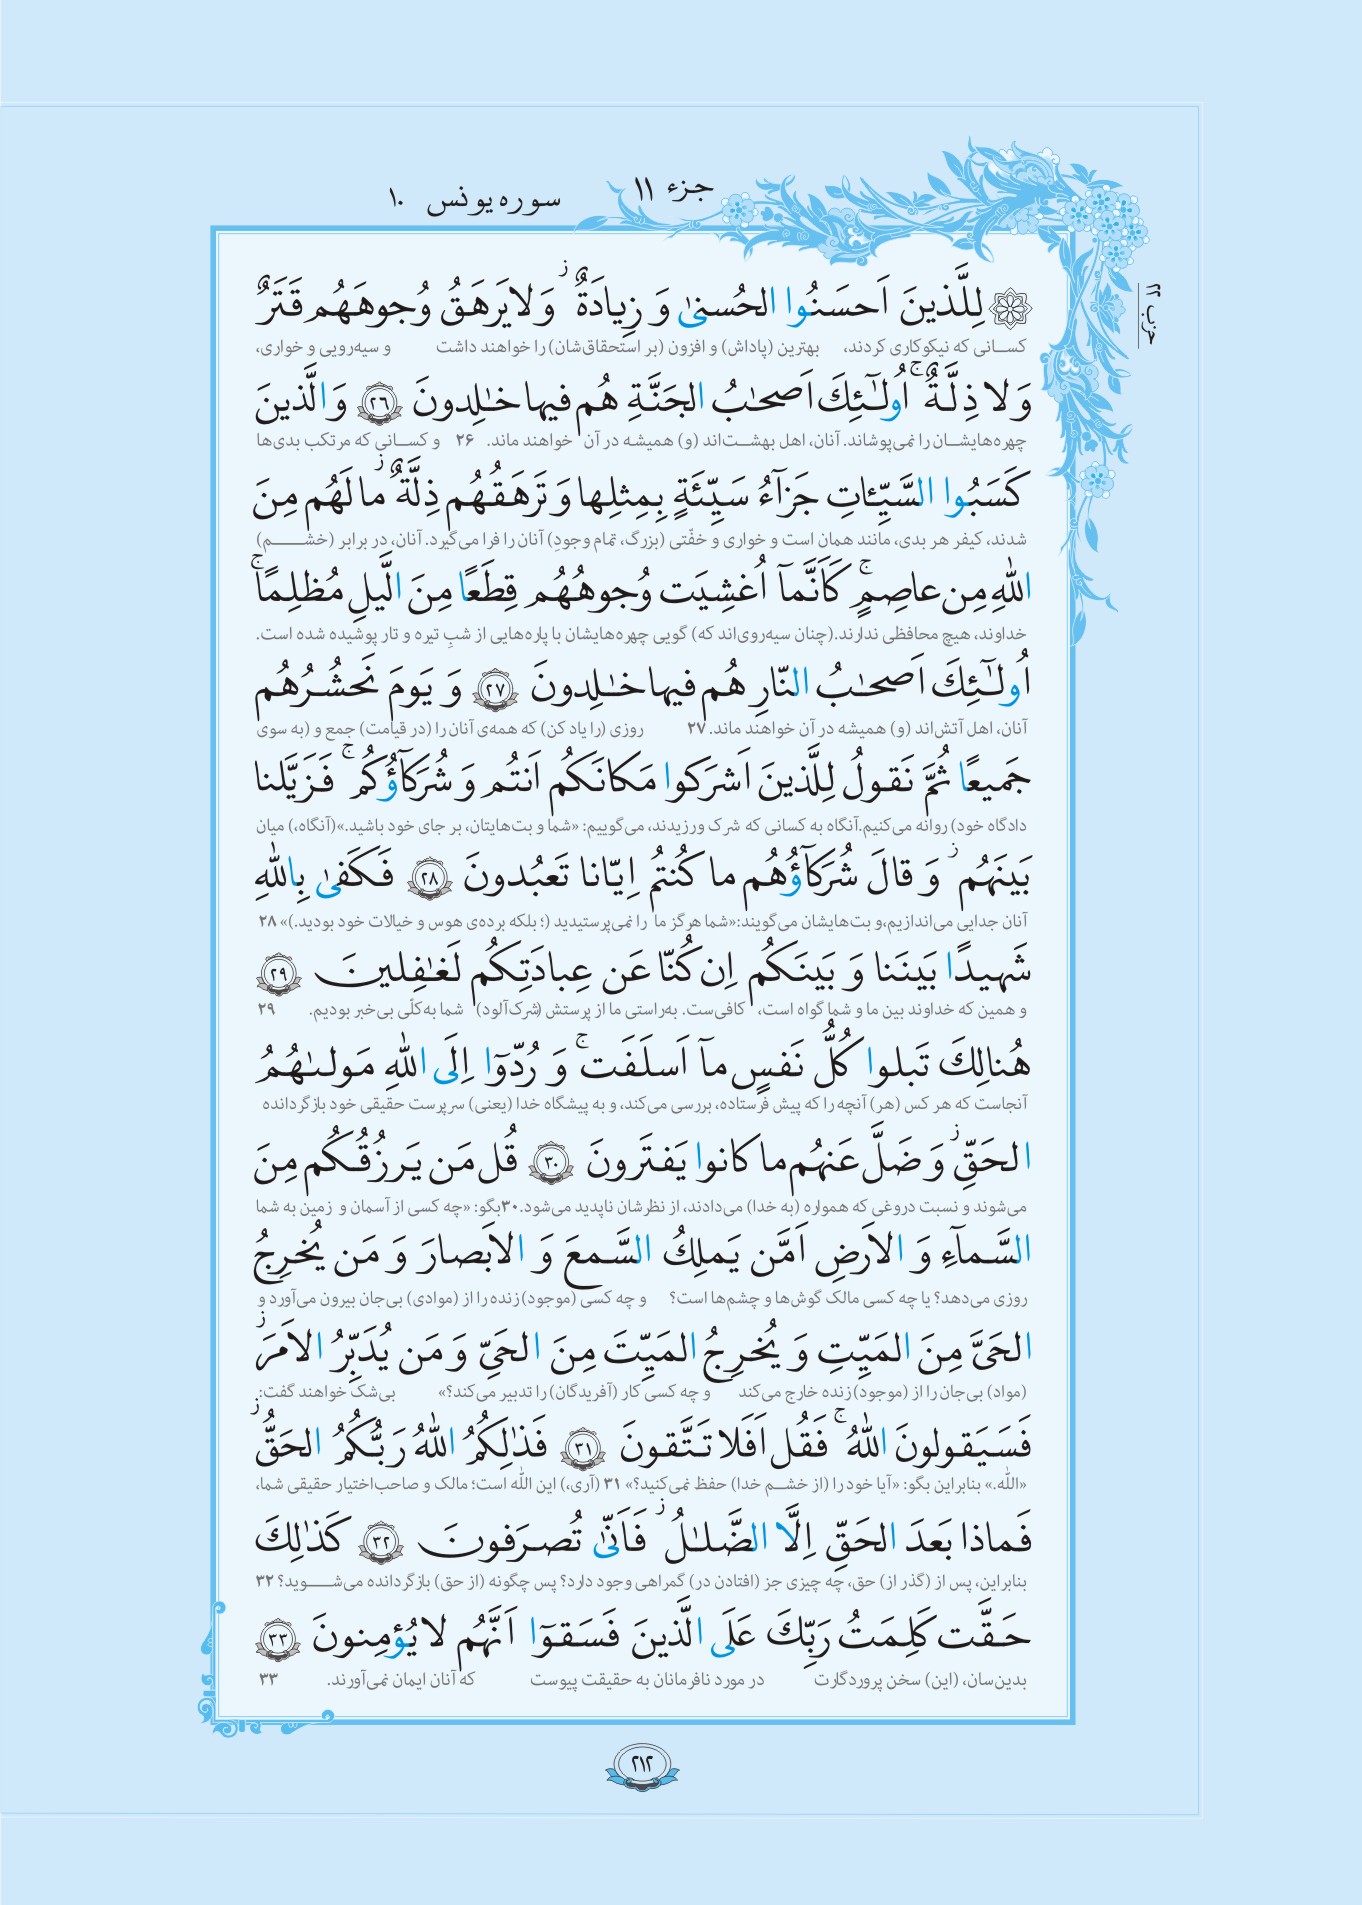 جزء ۱۱
سوره یونس ۱۰
حزب ۲۲
لِلَّذينَ اَحسَنُوا الحُسنىٰ وَ زِيادَةٌ ۖ وَ لا يَرهَقُ وُجوهَهُم قَتَرٌ
کسانی که نیکوکاری کردند، بهترین (پاداش) و افزون (بر استحقاق‌شان) را خواهند داشت و سیه‌رویی و خواری،
وَ لا ذِلَّةٌ ۚ اُولٰٓئِكَ اَصحٰبُ الجَنَّةِ هُم فيها خٰلِدونَ ﴿۲۶﴾ وَ الَّذينَ
چهره‌هایشان را نمی‌پوشاند. آنان، اهل بهشت‌اند (و) همیشه در آن خواهند ماند. ۲۶ و کسانی که مرتکب بدی‌ها
كَسَبُوا السَّيِّـٔاتِ جَزآءُ سَيِّئَةٍ بِمِثلِها وَ تَرهَقُهُم ذِلَّةٌ ز ما لَهُم مِنَ
شدند، کیفر هر بدی، مانند همان است و خواری و خفّتی (بزرگ، تمام وجودِ) آنان را فرا می‌گیرد. آنان، در برابر (خشم)
اللّٰهِ مِن عاصِمٍ ۚ كَاَنَّمآ اُغشِيَت وُجوهُهُم قِطَعًا مِنَ الَّيلِ مُظلِمًا ۚ
خداوند، هیچ محافظی ندارند.(چنان سیه‌روی‌اند که) گویی چهره‌هایشان با پاره‌هایی از شبِ تیره و تار پوشیده شده است.
اُولٰٓئِكَ اَصحٰبُ النّارِ هُم فيها خٰلِدونَ ﴿۲۷﴾ وَ يَومَ نَحشُرُهُم
آنان، اهل آتش‌اند (و) همیشه در آن خواهند ماند. ۲۷ روزی (را یاد کن) که همه‌ی آنان را (در قیامت) جمع و (به سوی
جَميعًا ثُمَّ نَقولُ لِلَّذينَ اَشرَكوا مَكانَكُم اَنتُم وَ شُرَكآؤُكُم ۚ فَزَيَّلنا
دادگاه خود) روانه می‌کنیم.آنگاه به کسانی که شرک ورزیدند، می‌گوییم: «شما و بت‌هایتان، بر جای خود باشید.»(آنگاه،) میان
بَينَهُم ز وَ قالَ شُرَكآؤُهُم ما كُنتُم اِيّانا تَعبُدونَ ﴿۲۸﴾ فَكَفىٰ بِاللّٰهِ
آنان جدایی می‌اندازیم،و بت‌هایشان می‌گویند:«شما هرگز ما را نمی‌پرستیدید (؛ بلکه برده‌ی هوس و خیالات خود بودید.)» ۲۸
شَهيدًا بَينَنا وَ بَينَكُم اِن كُنّا عَن عِبادَتِكُم لَغٰفِلينَ ﴿۲۹﴾
و همین که خداوند بین ما و شما گواه است، کافی‌ست. به‌راستی ما از پرستش (شرک‌آلود) شما به‌کلّی بی‌خبر بودیم. ۲۹
هُنالِكَ تَبلوا كُلُّ نَفسٍ مآ اَسلَفَت ۚ وَ رُدّوٓا اِلَى اللّٰهِ مَولىٰهُمُ
آنجاست که هر کس (هر) آنچه را که پیش فرستاده، بررسی می‌کند، و به پیشگاه خدا (یعنی) سرپرست حقیقی خود بازگردانده
الحَقِّ ز وَ ضَلَّ عَنهُم ما كانوا يَفتَرونَ ﴿۳۰﴾ قُل مَن يَرزُقُكُم مِنَ
می‌شوند و نسبت دروغی که همواره (به خدا) می‌دادند، از نظرشان ناپدید می‌شود.۳۰بگو: «چه کسی از آسمان و زمین به شما
السَّمآءِ وَ الاَرضِ اَمَّن يَملِكُ السَّمعَ وَ الاَبصارَ وَ مَن يُخرِجُ
روزی می‌دهد؟ یا چه کسی مالک گوش‌ها و چشم‌ها است؟ و چه کسی (موجود)زنده را از (موادی) بی‌جان بیرون می‌آورد و
الحَىَّ مِنَ المَيِّتِ وَ يُخرِجُ المَيِّتَ مِنَ الحَىِّ وَ مَن يُدَبِّرُ الاَمرَ ز
(مواد) بی‌جان را از (موجود)زنده خارج می‌کند و چه کسی کار (آفریدگان) را تدبیر می‌کند؟» بی‌شک خواهند گفت:
فَسَيَقولونَ اللّٰهُ ۚ فَقُل اَفَلا تَتَّقونَ ﴿۳۱﴾ فَذٰلِكُمُ اللّٰهُ رَبُّكُمُ الحَقُّ ز
«اللّٰه.» بنابراین بگو: «آیا خود را (از خشم خدا) حفظ نمی‌کنید؟» ۳۱ (آری،) این اللّٰه است؛ مالک و صاحب‌اختیار حقیقی شما،
فَماذا بَعدَ الحَقِّ اِلَّا الضَّلٰلُ ز فَاَنّىٰ تُصرَفونَ ﴿۳۲﴾ كَذٰلِكَ
بنابراین، پس از (گذر از) حق، چه چیزی جز (افتادن در) گمراهی وجود دارد؟ پس چگونه (از حق) بازگردانده می‌شوید؟ ۳۲
حَقَّت كَلِمَتُ رَبِّكَ عَلَى الَّذينَ فَسَقوٓا اَنَّهُم لا يُؤمِنونَ ﴿۳۳﴾
بدین‌سان، (این) سخن پروردگارت در مورد نافرمانان به حقیقت پیوست که آنان ایمان نمی‌آورند. ۳۳
۲۱۲